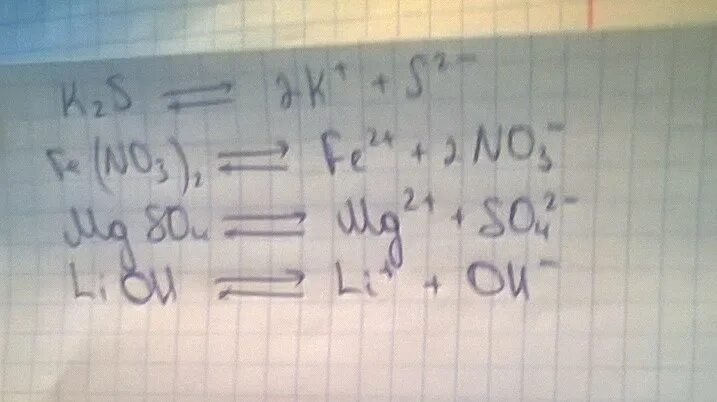 K₂S ⇌ 2K⁺ + S²⁻
Fe(NO₃)₂ ⇌ Fe²⁺ + 2NO₃⁻
MgSO₄ ⇌ Mg²⁺ + SO₄²⁻
LiOH ⇌ Li⁺ + OH⁻